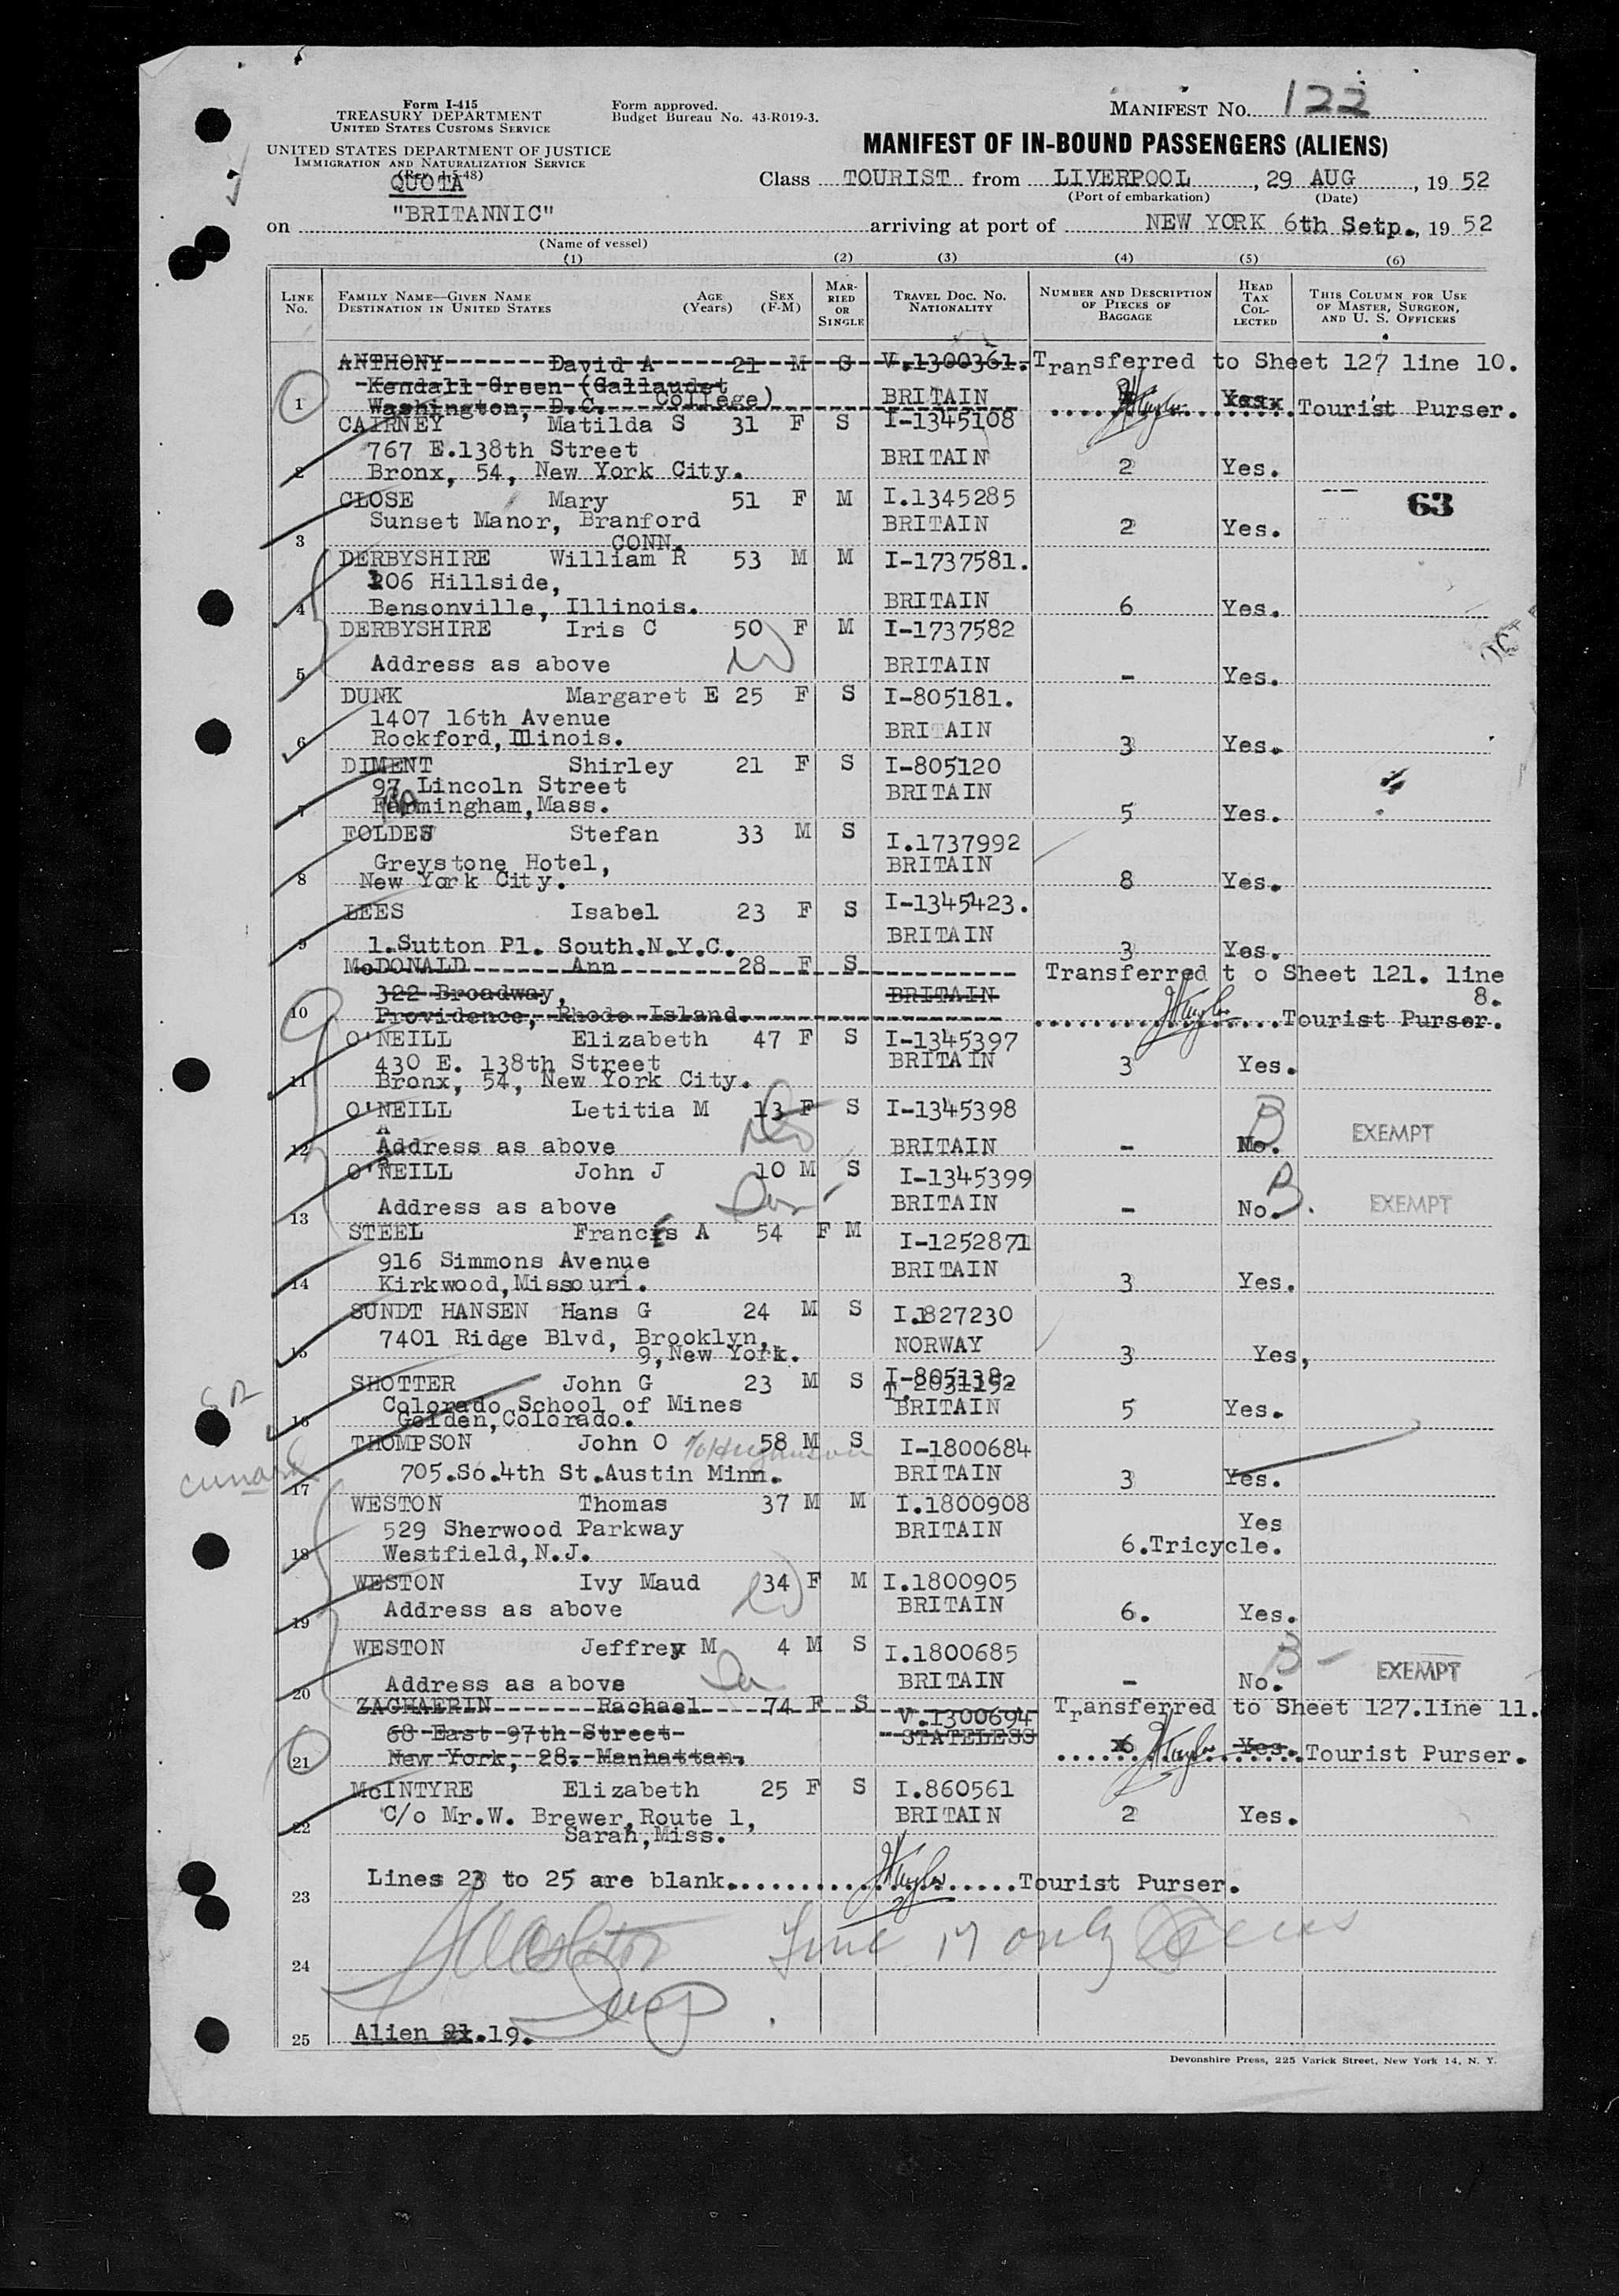 Form I-415
TREASURY DEPARTMENT
UNITED STATES CUSTOMS SERVICE
UNITED STATES DEPARTMENT OF JUSTICE
IMMIGRATION AND NATURALIZATION SERVICE
(Rev. 1-5-48)
QUOTA
Form approved.
Budget Bureau No. 43-R019-3.
MANIFEST NO. 122
MANIFEST OF IN-BOUND PASSENGERS (ALIENS)
Class TOURIST from LIVERPOOL, 29 AUG, 19 52
(Port of embarkation) (Date)
on "BRITANNIC" arriving at port of NEW YORK 6th Setp., 19 52
(Name of vessel)
(1) (2) (3) (4) (5) (6)
LINE NO. FAMILY NAME—GIVEN NAME DESTINATION IN UNITED STATES AGE (Years) SEX (F-M) MARRIED OR SINGLE TRAVEL DOC. NO. NATIONALITY NUMBER AND DESCRIPTION OF PIECES OF BAGGAGE HEAD TAX COLLECTED THIS COLUMN FOR USE OF MASTER, SURGEON, AND U. S. OFFICERS
ANTHONY David A 21 M S V.1300361. Transferred to Sheet 127 line 10.
Kendall Green (Gallaudet
College)
1 Washington, D.C. BRITAIN Yes Tourist Purser.
CAIRNEY Matilda S 31 F S I-1345108
767 E.138th Street BRITAIN
2 Bronx, 54, New York City. 2 Yes.
CLOSE Mary 51 F M I.1345285 63
Sunset Manor, Branford BRITAIN 2 Yes.
3 CONN.
DERBYSHIRE William R 53 M M I-1737581.
206 Hillside,
4 Bensonville, Illinois. BRITAIN 6 Yes.
DERBYSHIRE Iris C 50 F M I-1737582
5 Address as above BRITAIN - Yes.
DUNK Margaret E 25 F S I-805181.
1407 16th Avenue BRITAIN
6 Rockford, Illinois. 3 Yes.
DIMENT Shirley 21 F S I-805120
97 Lincoln Street BRITAIN
7 Farmingham,Mass. 5 Yes.
FOLDES Stefan 33 M S I.1737992
Greystone Hotel, BRITAIN
8 New York City. 8 Yes.
LEES Isabel 23 F S I-1345423.
BRITAIN
9 1.Sutton Pl. South.N.Y.C. 3 Yes.
McDONALD Ann 28 F S Transferred t o Sheet 121. line
322 Broadway, BRITAIN 8.
10 Providence, Rhode Island. Tourist Purser.
O'NEILL Elizabeth 47 F S I-1345397
430 E. 138th Street BRITAIN 3 Yes.
11 Bronx, 54, New York City.
O'NEILL Letitia M 13 F S I-1345398 B
12 Address as above BRITAIN - No. EXEMPT
O'NEILL John J 10 M S I-1345399 B
13 Address as above BRITAIN - No. EXEMPT
STEEL Francis A 54 F M I-1252871
916 Simmons Avenue BRITAIN
14 Kirkwood,Missouri. 3 Yes.
SUNDT HANSEN Hans G 24 M S I.827230
7401 Ridge Blvd, Brooklyn, NORWAY
15 9,New York. 3 Yes,
SHOTTER John G 23 M S I-805138.
T.2031192
Colorado School of Mines BRITAIN 5 Yes.
16 Golden,Colorado.
THOMPSON John O 58 M S I-1800684
Cunard
17 705.So.4th St.Austin Minn. BRITAIN 3 Yes.
WESTON Thomas 37 M M I.1800908
529 Sherwood Parkway BRITAIN Yes
18 Westfield,N.J. 6.Tricycle.
WESTON Ivy Maud 34 F M I.1800905
19 Address as above BRITAIN 6. Yes.
WESTON Jeffrey M 4 M S I.1800685 B
20 Address as above BRITAIN - No. EXEMPT
ZAGHAERIN Rachael 74 F S V.1300694 Transferred to Sheet 127.line 11.
68 East 97th Street STATELESS
21 New York, 28. Manhattan. 6 Yes. Tourist Purser.
McINTYRE Elizabeth 25 F S I.860561
C/o Mr.W. Brewer,Route 1, BRITAIN 2 Yes.
22 Sarah,Miss.
Lines 23 to 25 are blank. Tourist Purser.
23
Line 17 only
24
25 Alien 21.19.
Devonshire Press, 225 Varick Street, New York 14, N. Y.